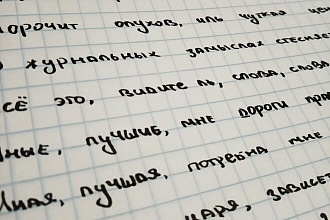 орочит опухов, иль чуткая
журнальных замыслах стесняет
сё это, видите ль, слова, слова
ные, лучшие, мне дороги пра
Иная, лучшая, потребна мне
царя, зависет